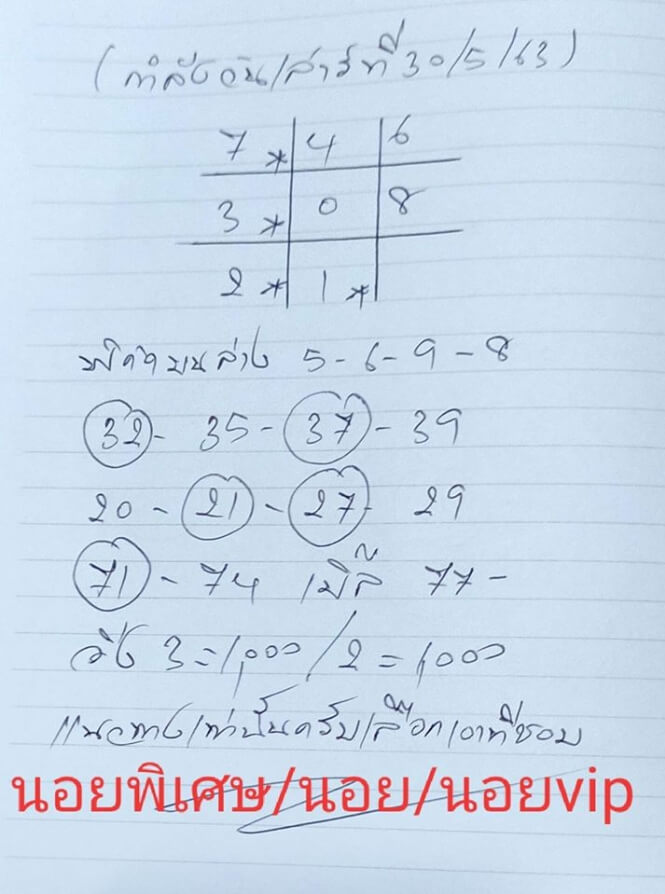 (กำลังวัน/เสาร์ที่ 30/5/63)
7* 4 6
3* 0 8
2* 1*
บนล่าง 5-6-9-8
32 - 35 - 37 - 39
20 - 21 - 27 - 29
71 - 74 เบิ้ล 77 -
วิ่ง 3 = 1,000 / 2 = 1,000
แนวทางเท่านั้นครับเลือกเอาที่ชอบ
นอยพิเศษ/นอย/นอยvip